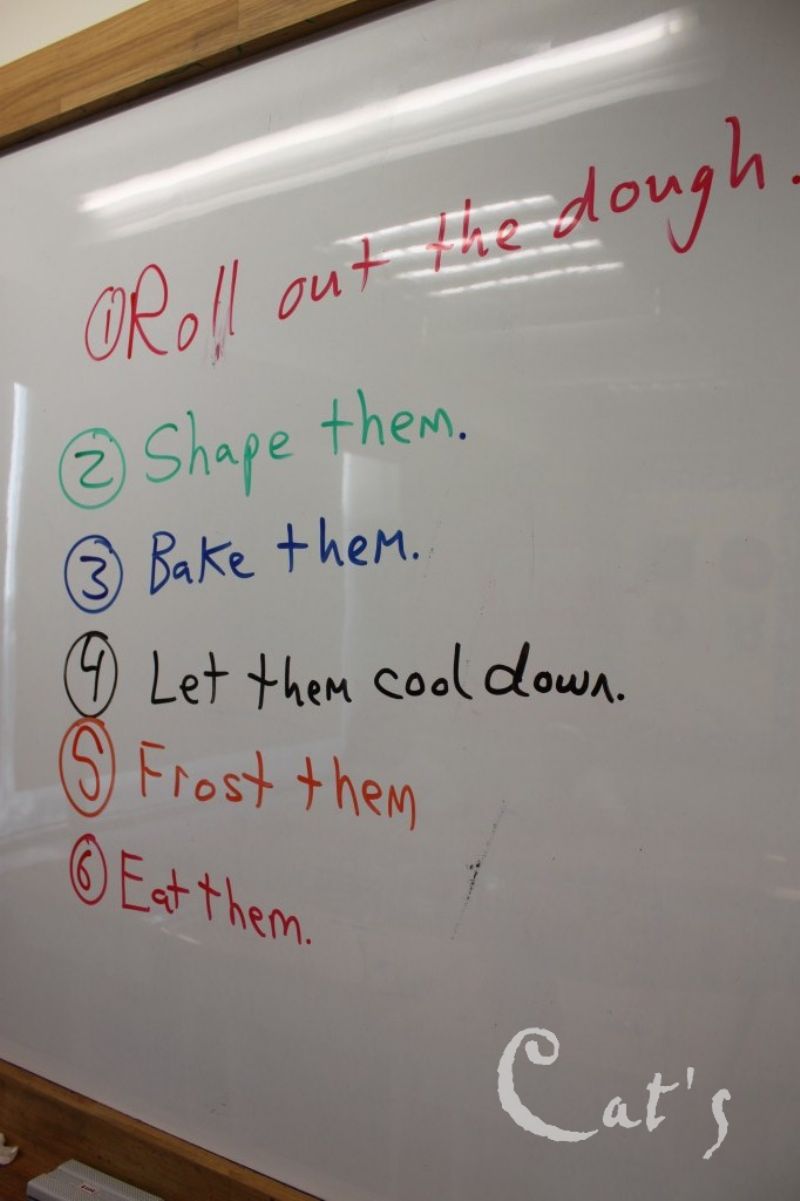 ① Roll out the dough.
② Shape them.
③ Bake them.
④ Let them cool down.
⑤ Frost them
⑥ Eat them.
Cat's